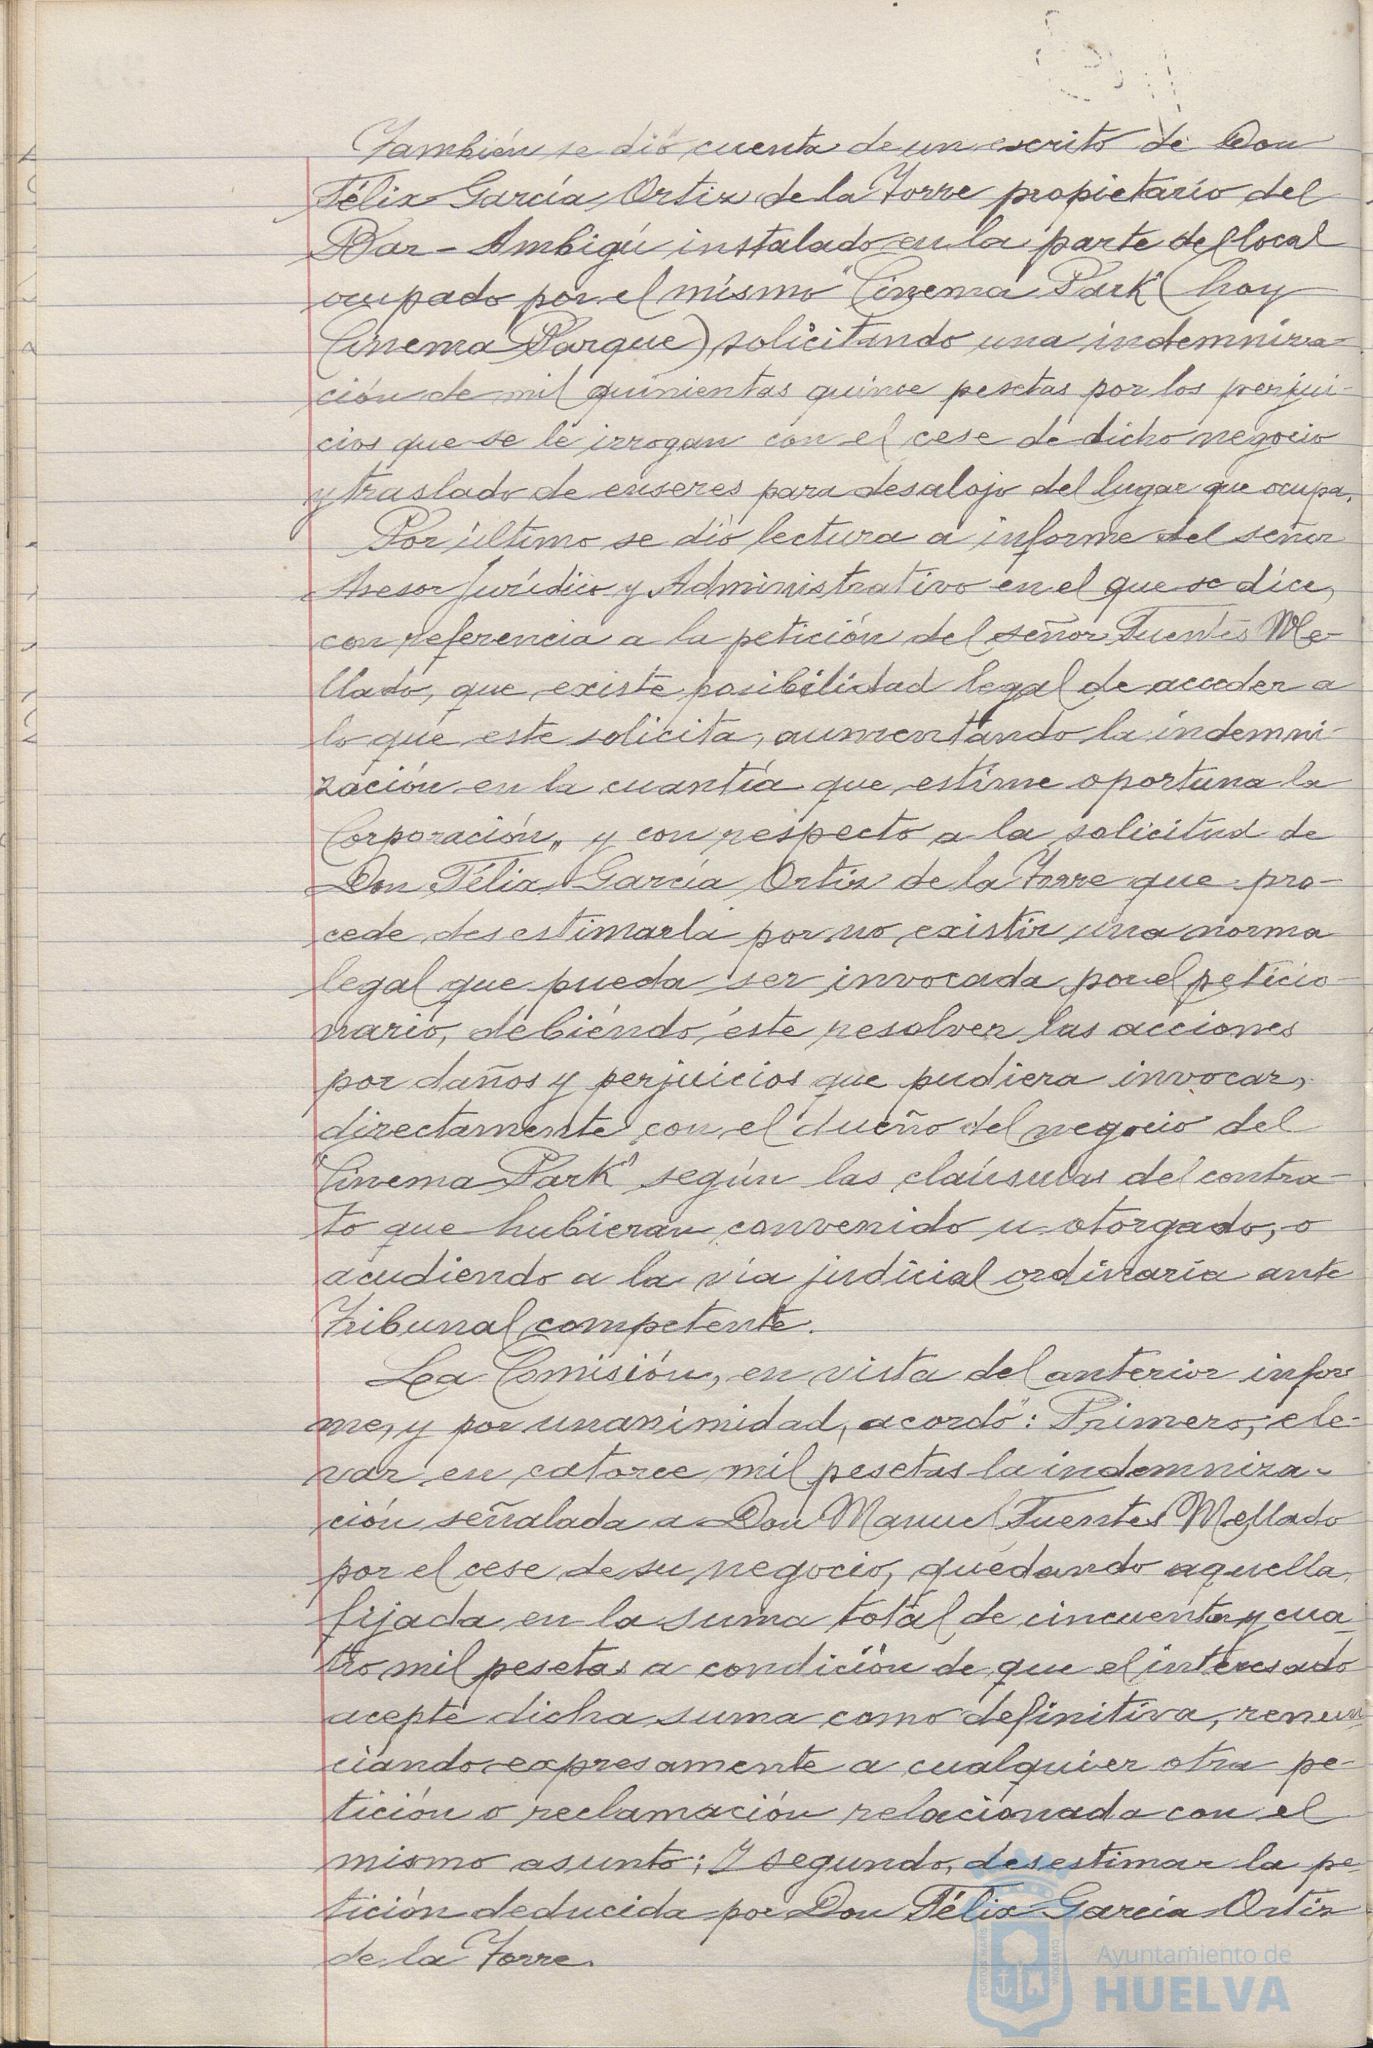 También se dió cuenta de un escrito de Don
Félix García Ortiz de la Torre propietario del
Bar-Ambigú instalado en la parte del local
ocupado por el mismo "Cinema Park" (hoy
Cinema Parque) solicitando una indemniza-
ción de mil quinientas quince pesetas por los perjui-
cios que se le irrogan con el cese de dicho negocio
y traslado de enseres para desalojo del lugar que ocupa.
Por último se dió lectura a informe del señor
Asesor Jurídico y Administrativo en el que se dice,
con referencia a la petición del señor Fuentes Me-
llado, que existe posibilidad legal de acceder a
lo que este solicita, aumentando la indemni-
zación en la cuantía que estime oportuna la
Corporación, y con respecto a la solicitud de
Don Félix García Ortiz de la Torre que pro-
cede desestimarla por no existir una norma
legal que pueda ser invocada por el peticio-
nario, debiendo éste resolver las acciones
por daños y perjuicios que pudiera invocar,
directamente con el dueño del negocio del
"Cinema Park" según las claúsulas del contra-
to que hubieran convenido u otorgado, o
acudiendo a la vía judicial ordinaria ante
Tribunal competente.
La Comisión, en vista del anterior infor
me, y por unanimidad, acordó: Primero, ele-
var en catorce mil pesetas la indemniza-
ción señalada a Don Manuel Fuentes Mellado
por el cese de su negocio, quedando aquella
fijada en la suma total de cincuenta y cua-
tro mil pesetas a condición de que el interesado
acepte dicha suma como definitiva, renun-
ciando expresamente a cualquier otra pe-
tición o reclamación relacionada con el
mismo asunto; Y segundo, desestimar la pe-
tición deducida por Don Félix García Ortiz
de la Torre.
Ayuntamiento de
HUELVA